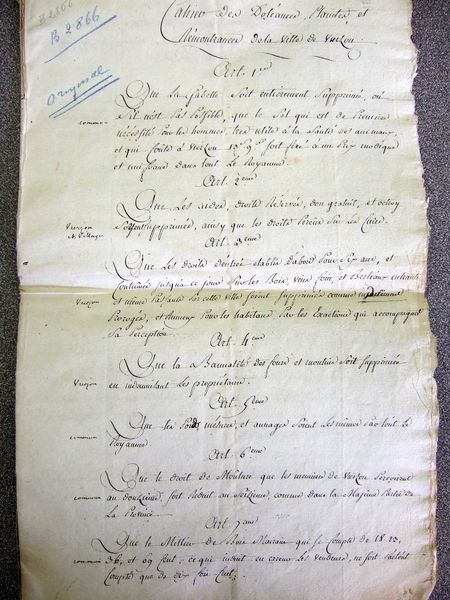 B 2866
B 2866
Original
Cahier des Doléances Plaintes et
Remontrances de la Ville de Vierzon
Art. 1er
Que La Gabelle Soit entierement Supprimée, ou
S'il n'est pas Possible, que le Sel qui est de Premiere
commun
nécéssité pour les hommes, tres utile à la Santé des animaux,
et qui Coûte à Vierzon 13s soit fixé à un Prix modique
et uniforme dans tout Le Royaume.
Art. 2eme
Que Les aides, droits Reservés, don gratuit, et octroy
Vierzon
Soient Supprimés, ainsy que les droits Percus Sur Les Cuirs.
Art. 3eme
Que Les droits d'entrée établis d'abord Pour Six ans, et
Continués jusqu'à ce jour Sur les Bois, vins, foin, et Bestiaux entrants
Vierzon
et même Passants En cette ville Soient Supprimés comme
Prorogés, et onereux Pour les habitans, Par les Exactions qui accompagnent
La Perception.
Art. 4eme
Que la Bannalité des fours et moulins Soit Supprimée
Vierzon
en indemnisant Les propriétaires.
Art. 5eme
Que les Poids, mesures, et aunages Soient Les mêmes dans tout Le
commun
Royaume.
Art. 6eme
Que le droit de Moûture que les meuniers de Vierzon Perçoivent
commun
au douzième, soit Réduit au Seizième, comme dans la Majeure Partie de
La Province.
Art. 7eme
Que le Millier de Bois Mairain qui se Compte de 18. 20,
commun
36, et 69 Cent; ce qui induit en erreur Les vendeurs, ne soit
Compté que de dix fois Cent.